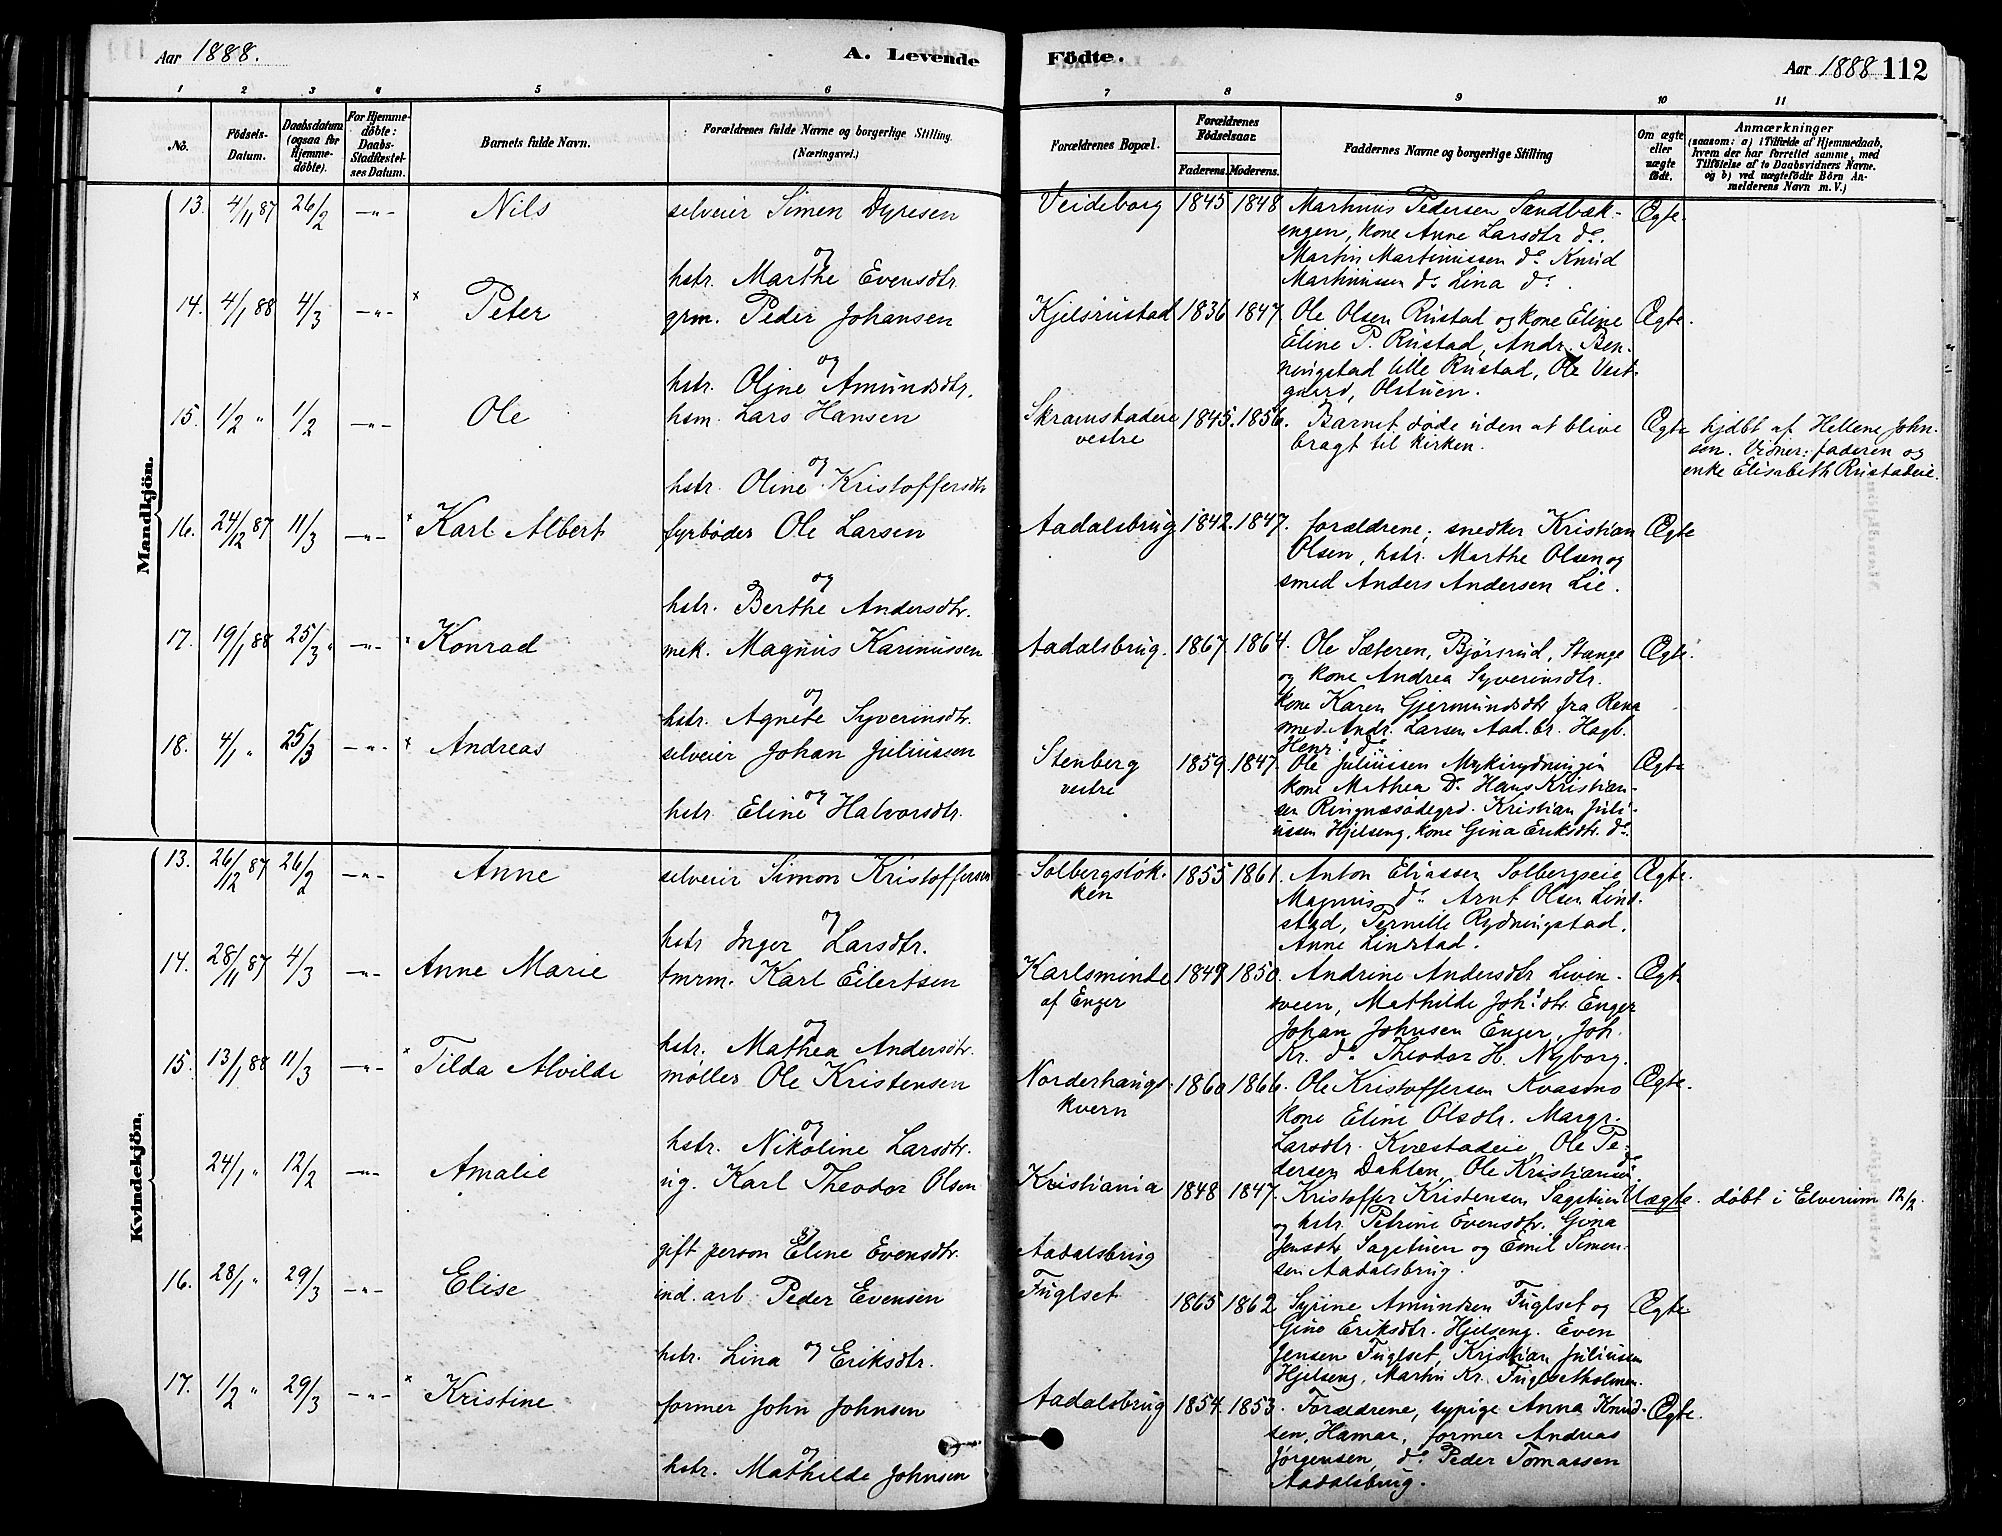 Aar 1888. A. Levende Födte. Aar 1888 112
1 2 3 4 5 6 7 8 9 10 11
No.
Födsels-Datum.
Daabsdatum (ogsaa for Hjemme-döbte).
For Hjemme-döbte: Daabs-Stadfæstel-ses Datum.
Barnets fulde Navn.
Forældrenes fulde Navne og borgerlige Stilling. (Næringsvei.)
Forældrenes Bopæl.
Forældrenes Födselsaar.
Faderens. Moderens.
Faddernes Navne og borgerlige Stilling
Om ægte eller uægte födt.
Anmærkninger
(saasom: a) i Tilfælde af Hjemmedaab,
hvem der har forrettet samme, med
Tilföielse af to Daabsvidners Navne.
og b) ved uægtefödte Börn An-
melderens Navn m. V.)
Mandkjön.
13. 4/11 87 26/2 -"- Nils selveier Simen Dyresen Veideborg 1845 1848 Marthinus Pedersen Sandbæk- Ægte.
engen, kone Anne Larsdtr do.
og Martin Martinussen do Knud
hstr. Marthe Evensdtr. Martinussen do Lina do.
14. 4/1 88 4/3 -"- x Peter grm. Peder Johansen Kjelsrustad 1836 1847. Ole Olsen Rustad og kone Eline Ægte.
Eline P. Rustad, Andr. Ben-
og ningstad lille Rustad, Ole Vest-
hstr. Oline Amundsdtr. gaard, Olstuen.
15. 1/2 " 1/2 -"- Ole hsm. Lars Hansen Skramstadeie vestre 1845. 1856. Barnet døde uden at blive Ægte hjdbt af Hellene John-
bragt til kirken. sen. Vidner: faderen og
og enke Elisabeth Rustadeie.
hstr. Oline Kristoffersdtr
16. 24/12 87 11/3 -"- x Karl Albert fyrbøder Ole Larsen Aadalsbrug 1842. 1847. forældrene, snedker Kristian Ægte
Olsen, hstr. Marthe Olsen og
og smed Anders Andersen Lie.
hstr. Berthe Andersdtr.
17. 19/1 88 25/3 " -"- Konrad mek. Magnus Karinussen Aadalsbrug. 1867. 1864. Ole Sæteren, Bjørsrud, Stange Ægte.
og kone Andrea Syverinsdtr.
og kone Karen Gjermundsdtr fra Rena
hstr. Agnete Syverinsdtr. smed. Andr. Larsen Aad.br. Hagb.
Henr. do
18. 4/1 " 25/3 -"- x Andreas selveier Johan Juliussen Stenberg vestre 1859. 1847. Ole Juliussen Mykirydningen Ægte
kone Mathea Do. Hans Kristian-
og sen Ringnæsødegrd. Kristian Juli-
hstr. Eline Halvorsdtr. ussen Hjelseng, kone Gina Eriksdtr. do.
Kvindekjön.
13. 26/12 87 26/2 -"- Anne selveier Simon Kristoffersen Solbergsløk-ken 1855 1861. Anton Eliassen Solbergseie Ægte.
Magnus do. Arnt Olsen Lind-
og stad, Pernille Rydningstad,
hstr Inger Larsdtr. Anne Linstad.
14. 28/11 87 4/3 -"- Anne Marie tmrm. Karl Eilertsen Karlsminde af Enger 1849 1850. Andrine Andersdtr Liven- Ægte
veen, Mathilde Joh.dtr Enger
og Johan Johnsen Enger, Joh.
hstr. Mathea Andersdtr. Kr. do Theodor H. Nyborg.
15. 13/1 88 11/3 -"- x Tilda Alvilde møller Ole Kristensen Norderhaugs-kvern 1860 1866. Ole Kristoffersen Kvasmo Ægte.
kone Eline Olsdtr. Margr.
og Larsdtr. Kvæstadeie, Ole Pe-
hstr. Nikoline Larsdtr. dersen Dahlen, Ole Kristiansen do
24/1 " 12/2 -"- Amalie ug. Karl Theodor Olsen Kristiania 1848 1847. Kristoffer Kristensen Sagstuen Uægte. døbt i Elverum 12/2.
og hstr. Petrine Evensdtr. Gina
og Jensdtr Sagstuen og Emil Simen-
gift person Eline Evensdtr. Aadalsbrug sen Aadalsbrug.
16. 28/1 " 29/3 -"- Elise ind. arb Peder Evensen Fuglset 1865 1862 Syrine Amundsen Fuglset og Ægte
Gina Eriksdtr. Hjelseng. Even
og Jensen Fuglset, Kristian Juliussen
hstr. Lina Eriksdtr. Hjelseng, Martin Kr. Fuglsetholmen.
17. 1/2 " 29/3 -"- x Kristine former John Johnsen Aadalsbrug 1854. 1853. Forældrene, sypige Anna Knud- Ægte.
sen, Hamar, former Andreas
og Jørgensen, do Peder Tomassen
hstr. Mathilde Johnsen Aadalsbrug.